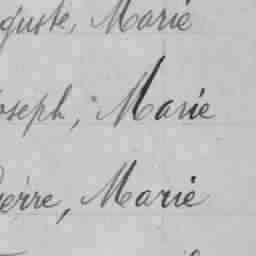 guste, Marie
oseph, Marie
ierre, Marie